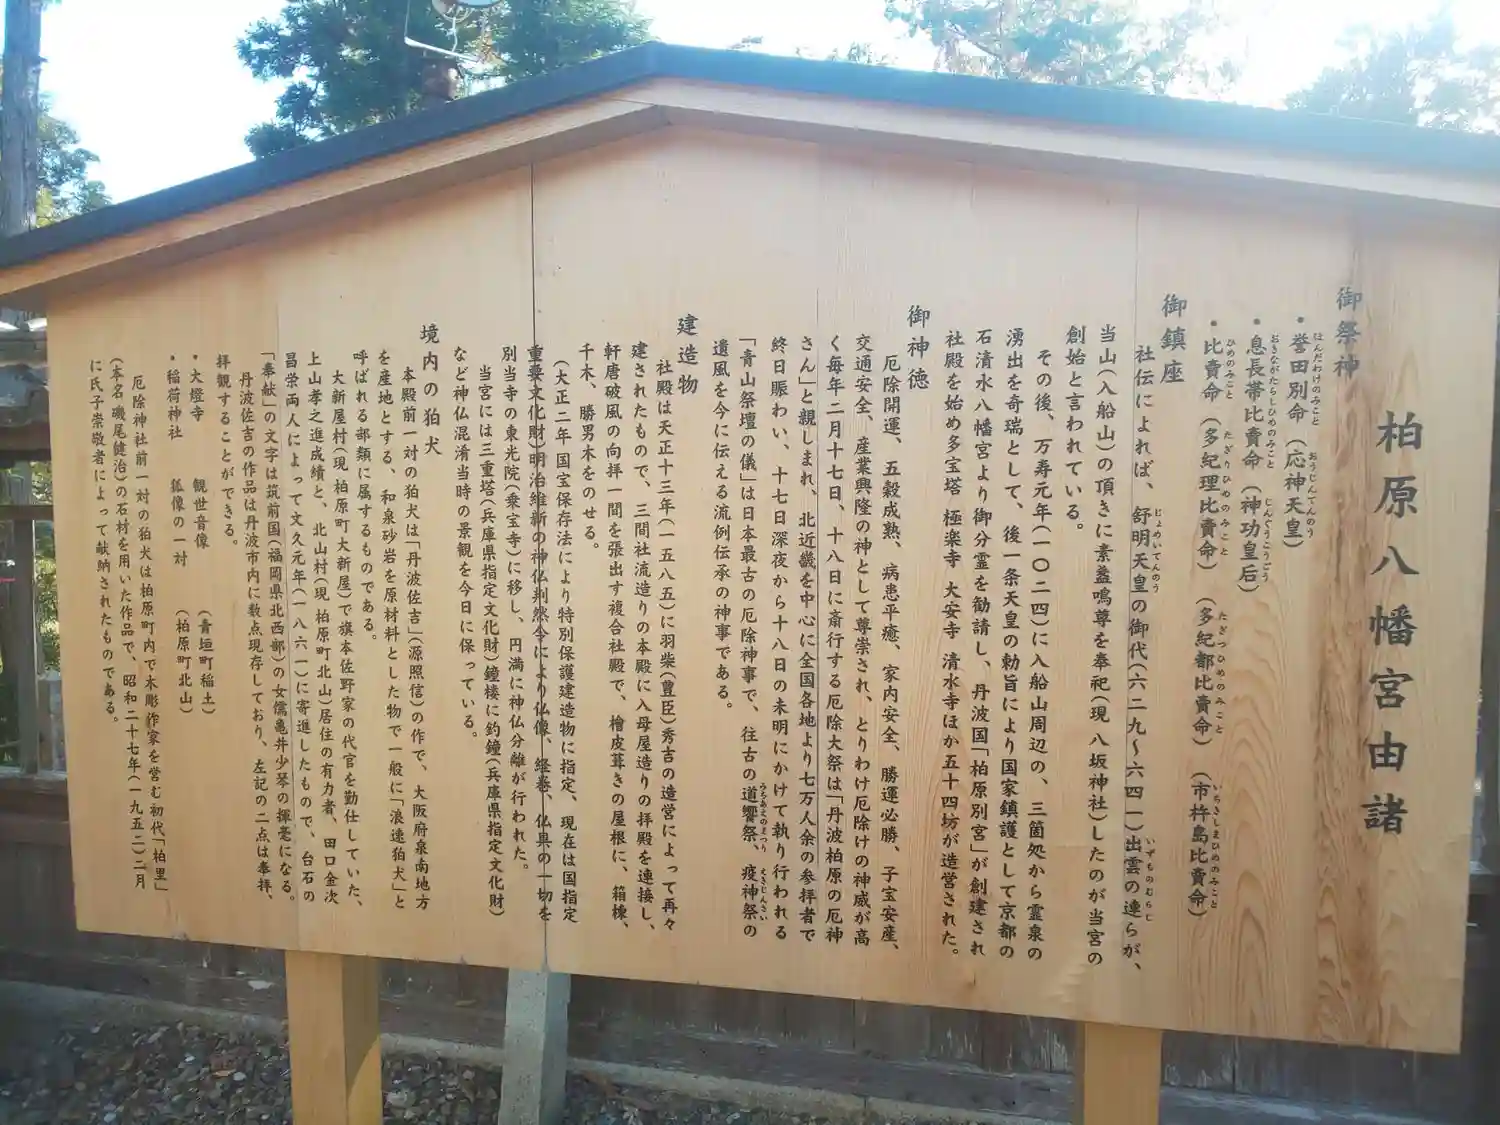 柏原八幡宮由諸
御祭神
・誉田別命（応神天皇）
・息長帯比賣命（神功皇后）
・比賣命（多紀理比賣命）（多紀都比賣命）（市杵島比賣命）
御鎮座
社伝によれば、舒明天皇の御代（六二九～六四一）出雲の連らが、
当山（入船山）の頂きに素盞嗚尊を奉祀（現 八坂神社）したのが当宮の
創始と言われている。
その後、万寿元年（一〇二四）に入船山周辺の、三箇処から霊泉の
湧出を奇瑞として、後一条天皇の勅旨により国家鎮護として京都の
石清水八幡宮より御分霊を勧請し、丹波国「柏原別宮」が創建され
社殿を始め多宝塔 極楽寺 大安寺 清水寺ほか五十四坊が造営された。
御神徳
厄除開運、五穀成熟、病患平癒、家内安全、勝運必勝、子宝安産、
交通安全、産業興隆の神として尊崇され、とりわけ厄除けの神威が高
く毎年二月十七日、十八日に斎行する厄除大祭は「丹波柏原の厄神
さん」と親しまれ、北近畿を中心に全国各地より七万人余の参拝者で
終日賑わい、十七日深夜から十八日の未明にかけて執り行われる
「青山祭壇の儀」は日本最古の厄除神事で、往古の道響祭、疫神祭の
遺風を今に伝える流例伝承の神事である。
建造物
社殿は天正十三年（一五八五）に羽柴（豊臣）秀吉の造営によって再々
建されたもので、三間社流造りの本殿に入母屋造りの拝殿を連接し、
軒唐破風の向拝一間を張出す複合社殿で、檜皮葺きの屋根に、箱棟、
千木、勝男木をのせる。
（大正二年 国宝保存法により特別保護建造物に指定、現在は国指定
重要文化財）明治維新の神仏判然令により仏像、経巻、仏具の一切を
別当寺の東光院（乗宝寺）に移し、円満に神仏分離が行われた。
当宮には三重塔（兵庫県指定文化財）鐘楼に釣鐘（兵庫県指定文化財）
など神仏混淆当時の景観を今日に保っている。
境内の狛犬
本殿前一対の狛犬は「丹波佐吉」（源照信）の作で、大阪府泉南地方
を産地とする、和泉砂岩を原材料とした物で一般に「浪速狛犬」と
呼ばれる部類に属するものである。
大新屋村（現 柏原町大新屋）で旗本佐野家の代官を勤仕していた、
上山孝之進成績と、北山村（現 柏原町北山）居住の有力者、田口金次
昌栄両人によって文久元年（一八六一）に寄進したもので、台石の
「奉献」の文字は筑前国（福岡県北西部）の女儒亀井少琴の揮毫になる。
丹波佐吉の作品は丹波市内に数点現存しており、左記の二点は奉拝、
拝観することができる。
・大燈寺 観世音像 （青垣町稲土）
・稲荷神社 狐像の一対 （柏原町北山）
厄除神社前一対の狛犬は柏原町内で木彫作家を営む初代「柏里」
（本名 磯尾健治）の石材を用いた作品で、昭和二十七年（一九五二）二月
に氏子崇敬者によって献納されたものである。